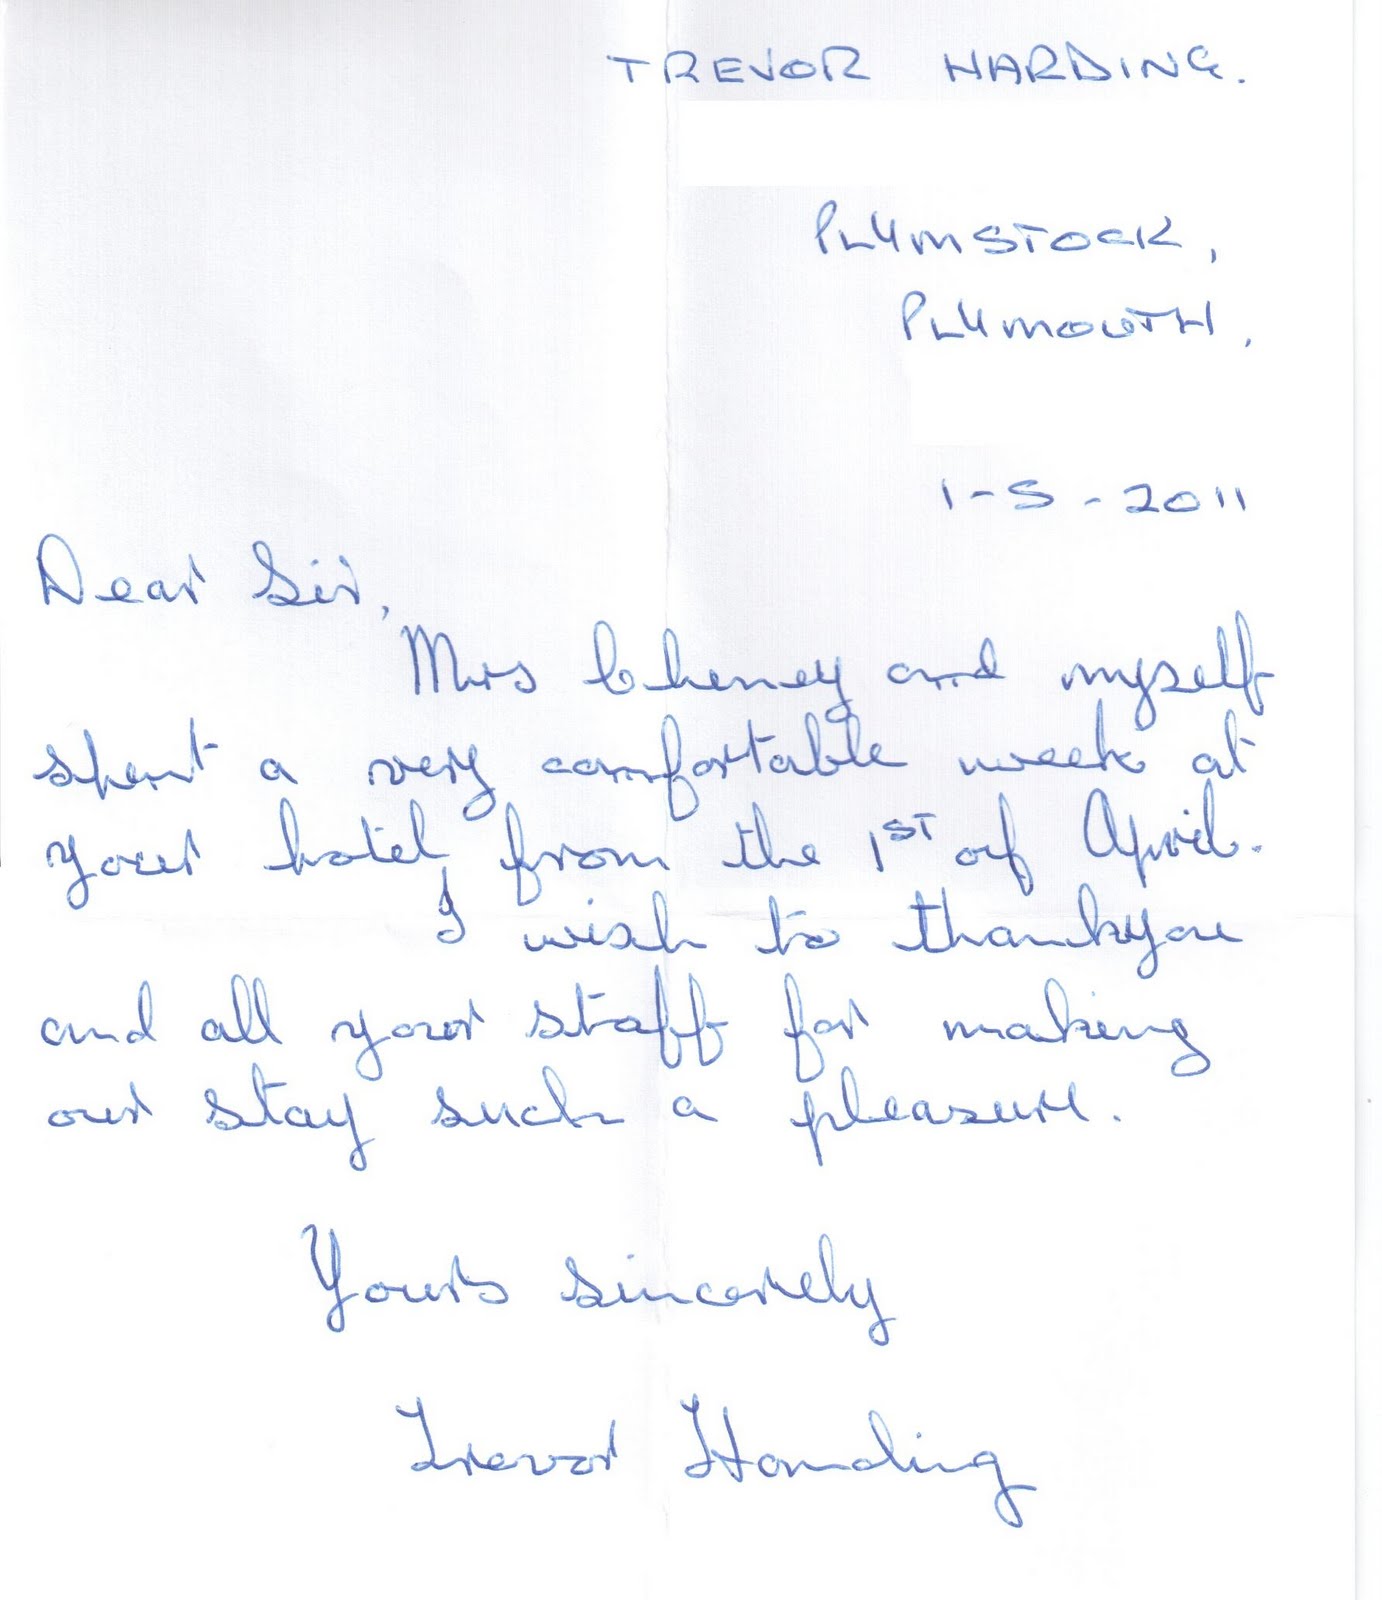 TREVOR HARDING.
PLYMSTOCK,
PLYMOUTH,
1-5-2011
Dear Sir,
Mrs Cheney and myself
spent a very comfortable week at
your hotel from the 1ST of April.
I wish to thankyou
and all your staff for making
our stay such a pleasure.
Yours sincerely
Trevor Harding